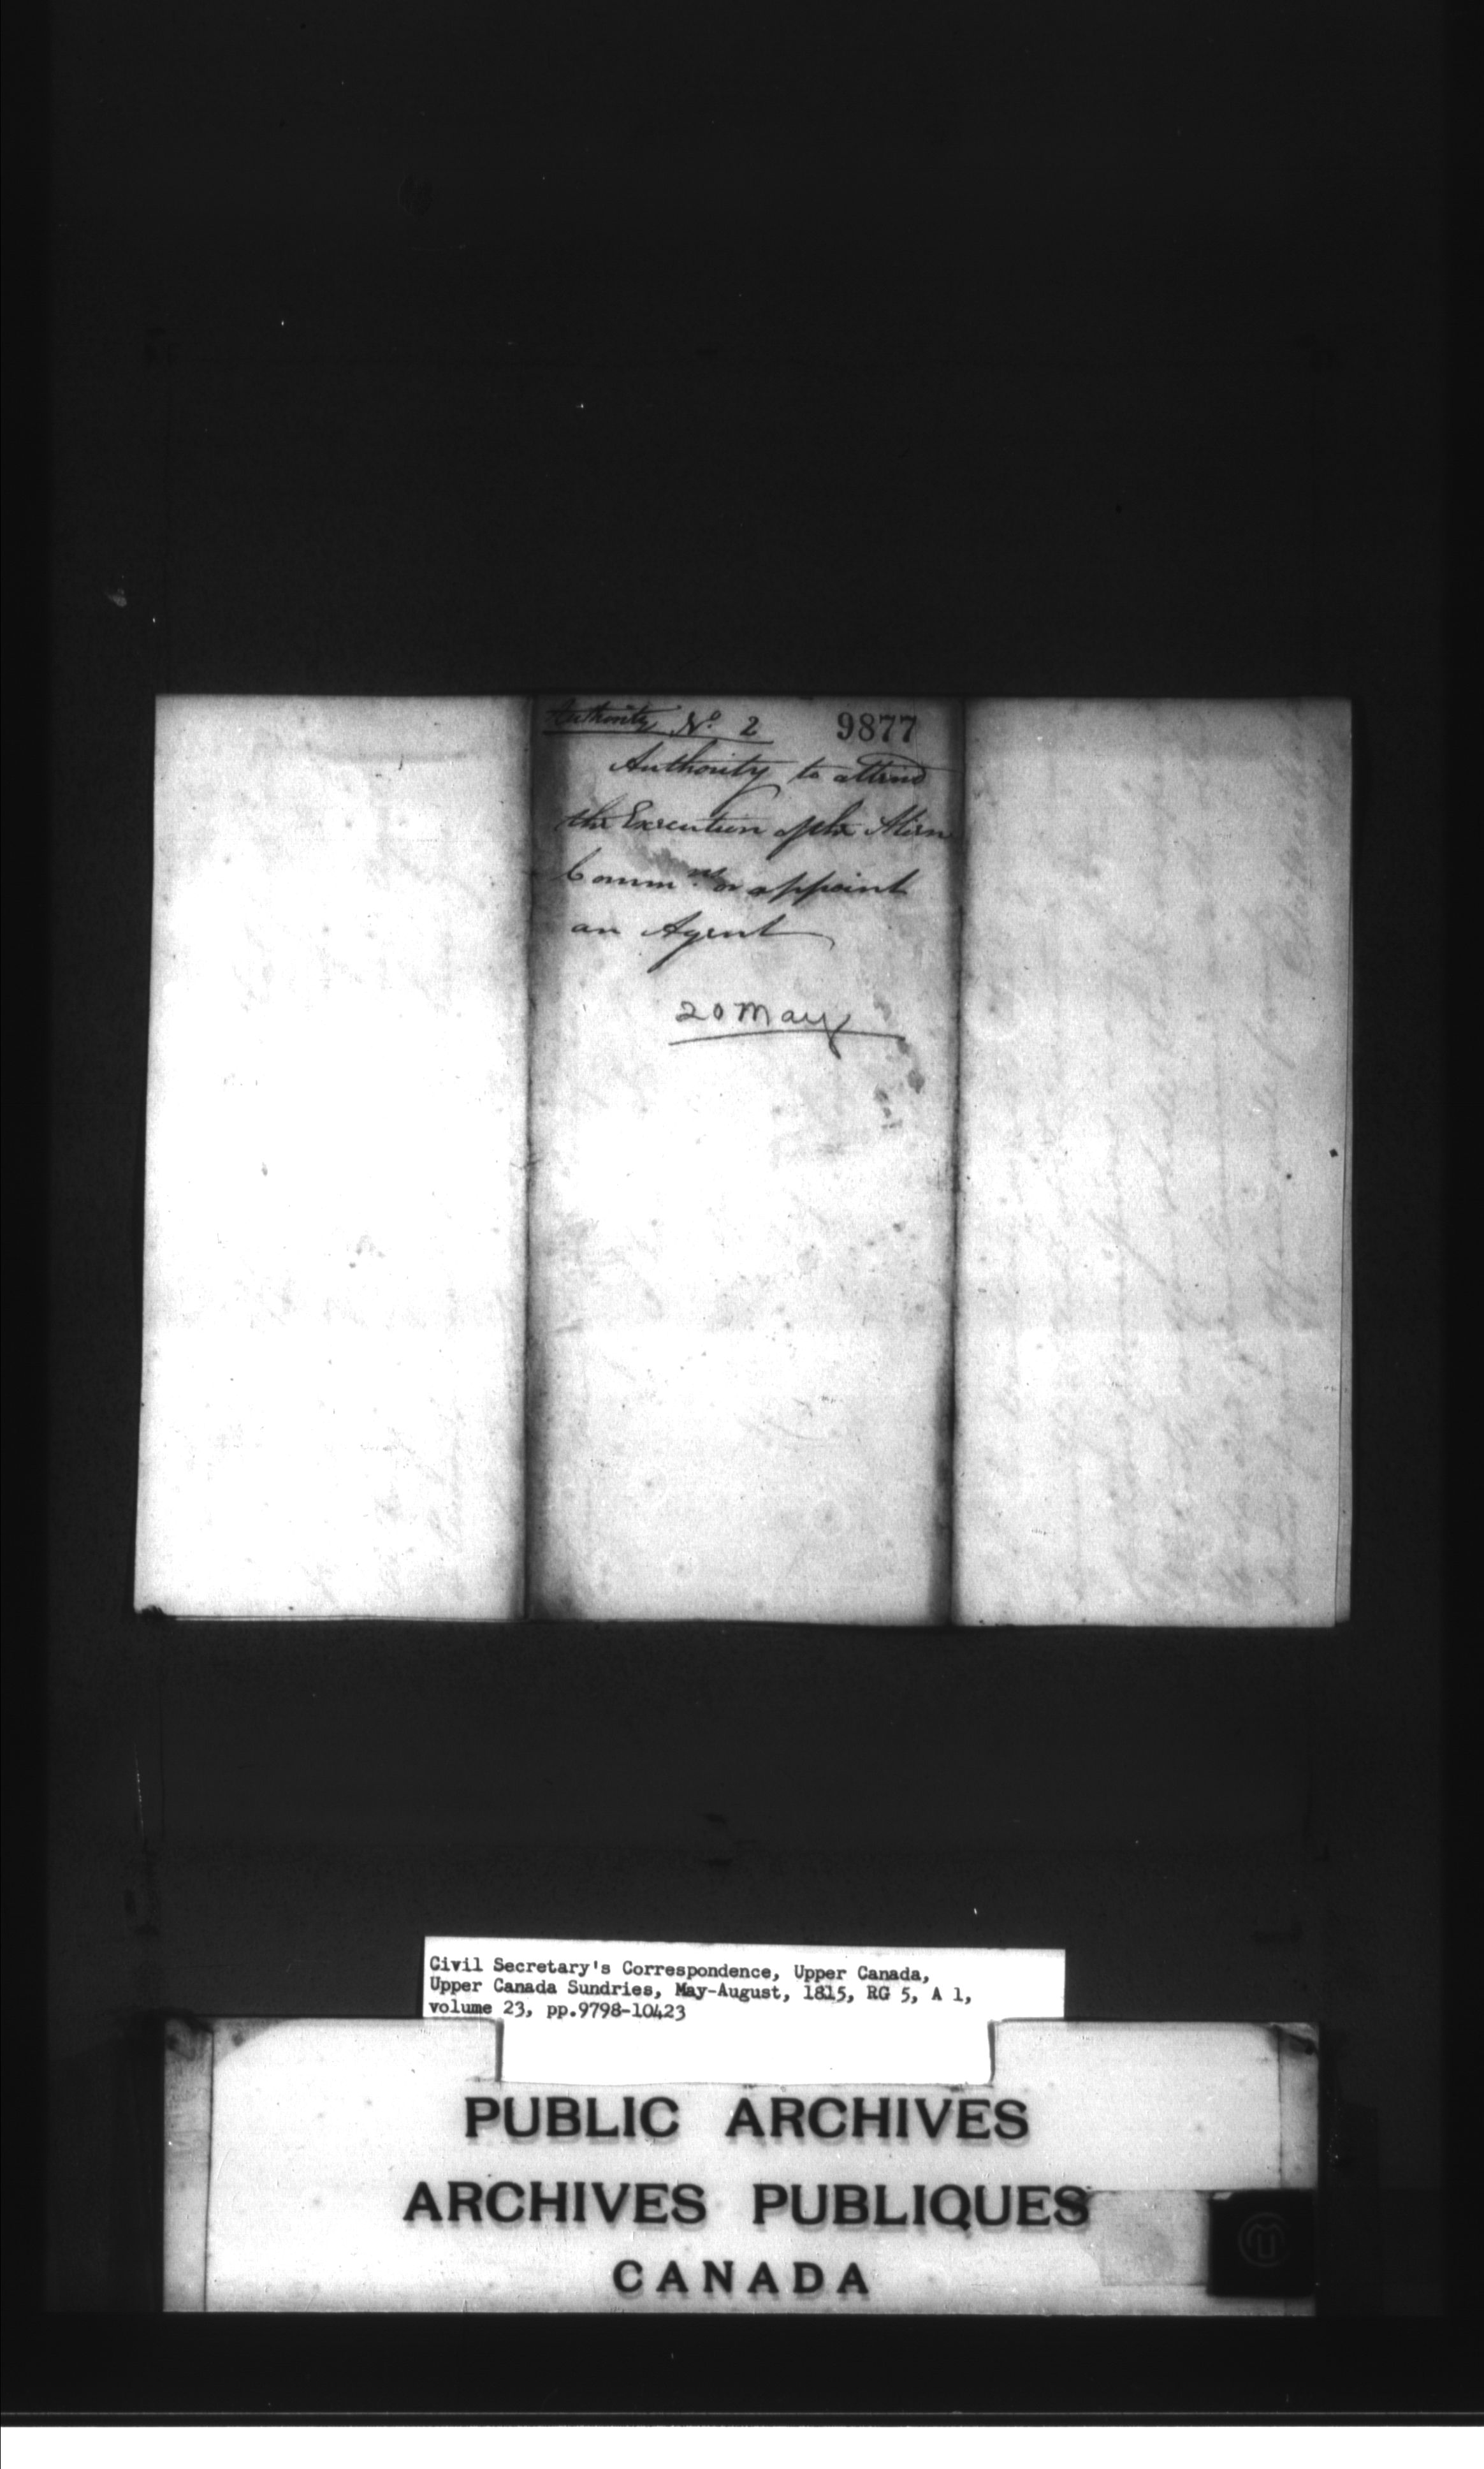 Authority No. 2 9877
Authority to attend
the Execution of the Alien
Commns or appoint
an Agent
20 May
Civil Secretary's Correspondence, Upper Canada,
Upper Canada Sundries, May-August, 1815, RG 5, A 1,
volume 23, pp.9798-10423
PUBLIC ARCHIVES
ARCHIVES PUBLIQUES
CANADA